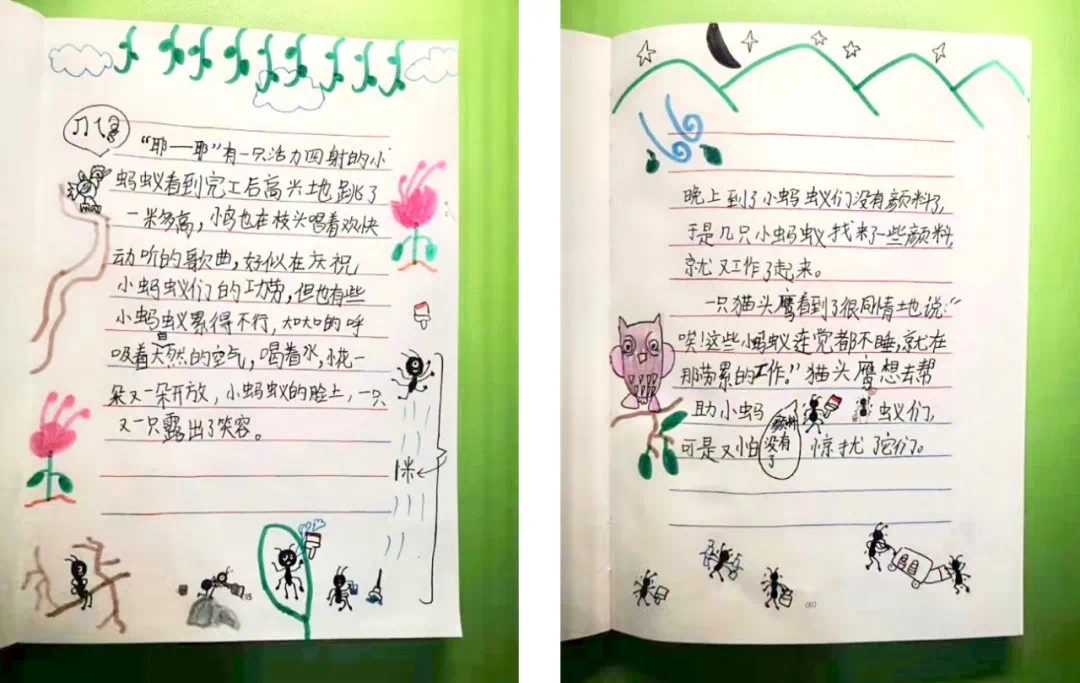 “耶——耶”有一只活力四射的小
蚂蚁看到完工后高兴地跳了
一米多高，小鸟也在枝头唱着欢快
动听的歌曲，好似在庆祝
小蚂蚁们的功劳，但也有些
小蚂蚁累得不行，大口大口的呼
吸着大自然的空气，喝着水，小花一
朵又一朵开放，小蚂蚁的脸上，一只
又一只露出了笑容。
1米
15
晚上到了小蚂蚁们没有颜料了，
于是几只小蚂蚁找来了一些颜料，
就又工作了起来。
一只猫头鹰看到了很同情地说：“
唉！这些小蚂蚁连觉都不睡，就在
那劳累的工作。”猫头鹰想去帮
助小蚂蚁们，
可是又怕惊扰了它们。
颜料
没有
了
007